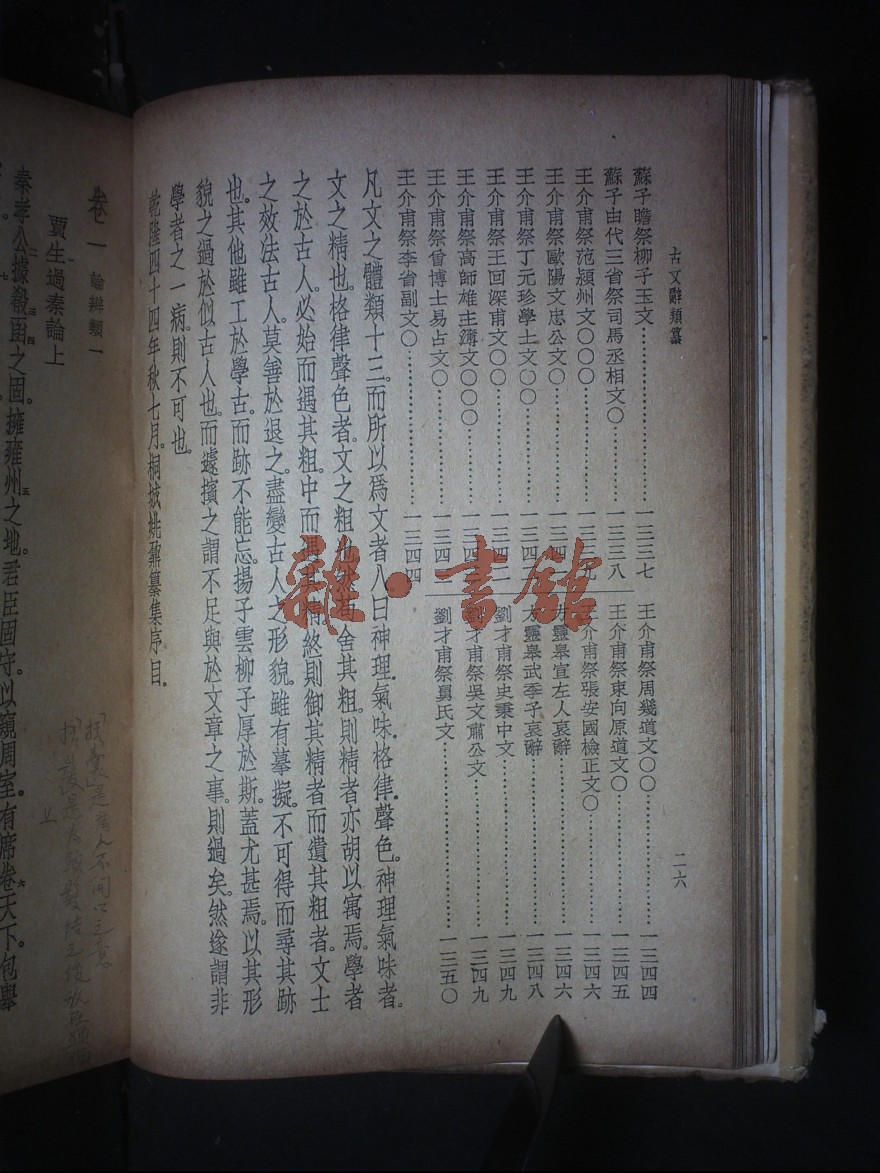 古文辭類纂 二六
蘇子瞻祭柳子玉文……一三三七
蘇子由代三省祭司馬丞相文〇……一三三八
王介甫祭范潁州文〇〇〇……一三
王介甫祭歐陽文忠公文〇……一三四
王介甫祭丁元珍學士文〇〇……一三四
王介甫祭王回深甫文〇……一三四
王介甫祭高師雄主簿文〇〇〇……一三四
王介甫祭曾博士易占文〇……一三四
王介甫祭李省副文〇……一三四四
王介甫祭周幾道文〇〇……一三四四
王介甫祭束向原道文〇……一三四五
王介甫祭張安國檢正文〇……一三四六
方靈皋宣左人哀辭……一三四六
方靈皋武季子哀辭……一三四八
劉才甫祭史秉中文……一三四九
劉才甫祭吳文肅公文……一三四九
劉才甫祭舅氏文……一三五〇
凡文之體類十三。而所以爲文者八。曰神理氣味。格律聲色。神理氣味者。
文之精也。格律聲色者。文之粗也。然苟舍其粗。則精者亦胡以寓焉。學者
之於古人。必始而遇其粗。中而遇其精。終則御其精者而遺其粗者。文士
之效法古人。莫善於退之。盡變古人之形貌。雖有摹擬。不可得而尋其跡
也。其他雖工於學古。而跡不能忘。揚子雲柳子厚於斯。蓋尤甚焉。以其形
貌之過於似古人也。而遽擯之。謂不足與於文章之事。則過矣。然遂謂非
學者之一病。則不可也。
乾隆四十四年秋七月。桐城姚鼐纂集序目。
卷一 論辨類一
賈生過秦論上
秦孝公據殽函之固。擁雍州之地。君臣固守。以窺周室。有席卷天下。包舉
雜·書館